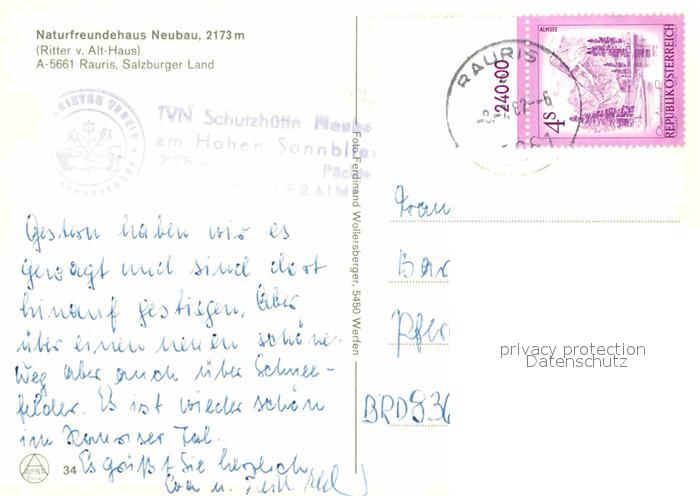 Naturfreundehaus Neubau, 2173 m
(Ritter v. Alt-Haus)
A-5661 Rauris, Salzburger Land
TVN Schutzhütte Neubau
am Hohen Sonnblick
Gestern haben wir es
gewagt und sind dort
hinauf gestiegen. Aber
über einen neuen schönen
Weg aber auch über Schnee-
felder. Es ist wieder schön
im Rauriser Tal.
Es grüßt Sie herzlich
Eva u.
34
Foto Ferdinand Wollersberger, 5450 Werfen
RAURIS
240·00
ALMSEE
4S
REPUBLIK ÖSTERREICH
Frau
Bar
Pfer
BRD 836
privacy protection
Datenschutz